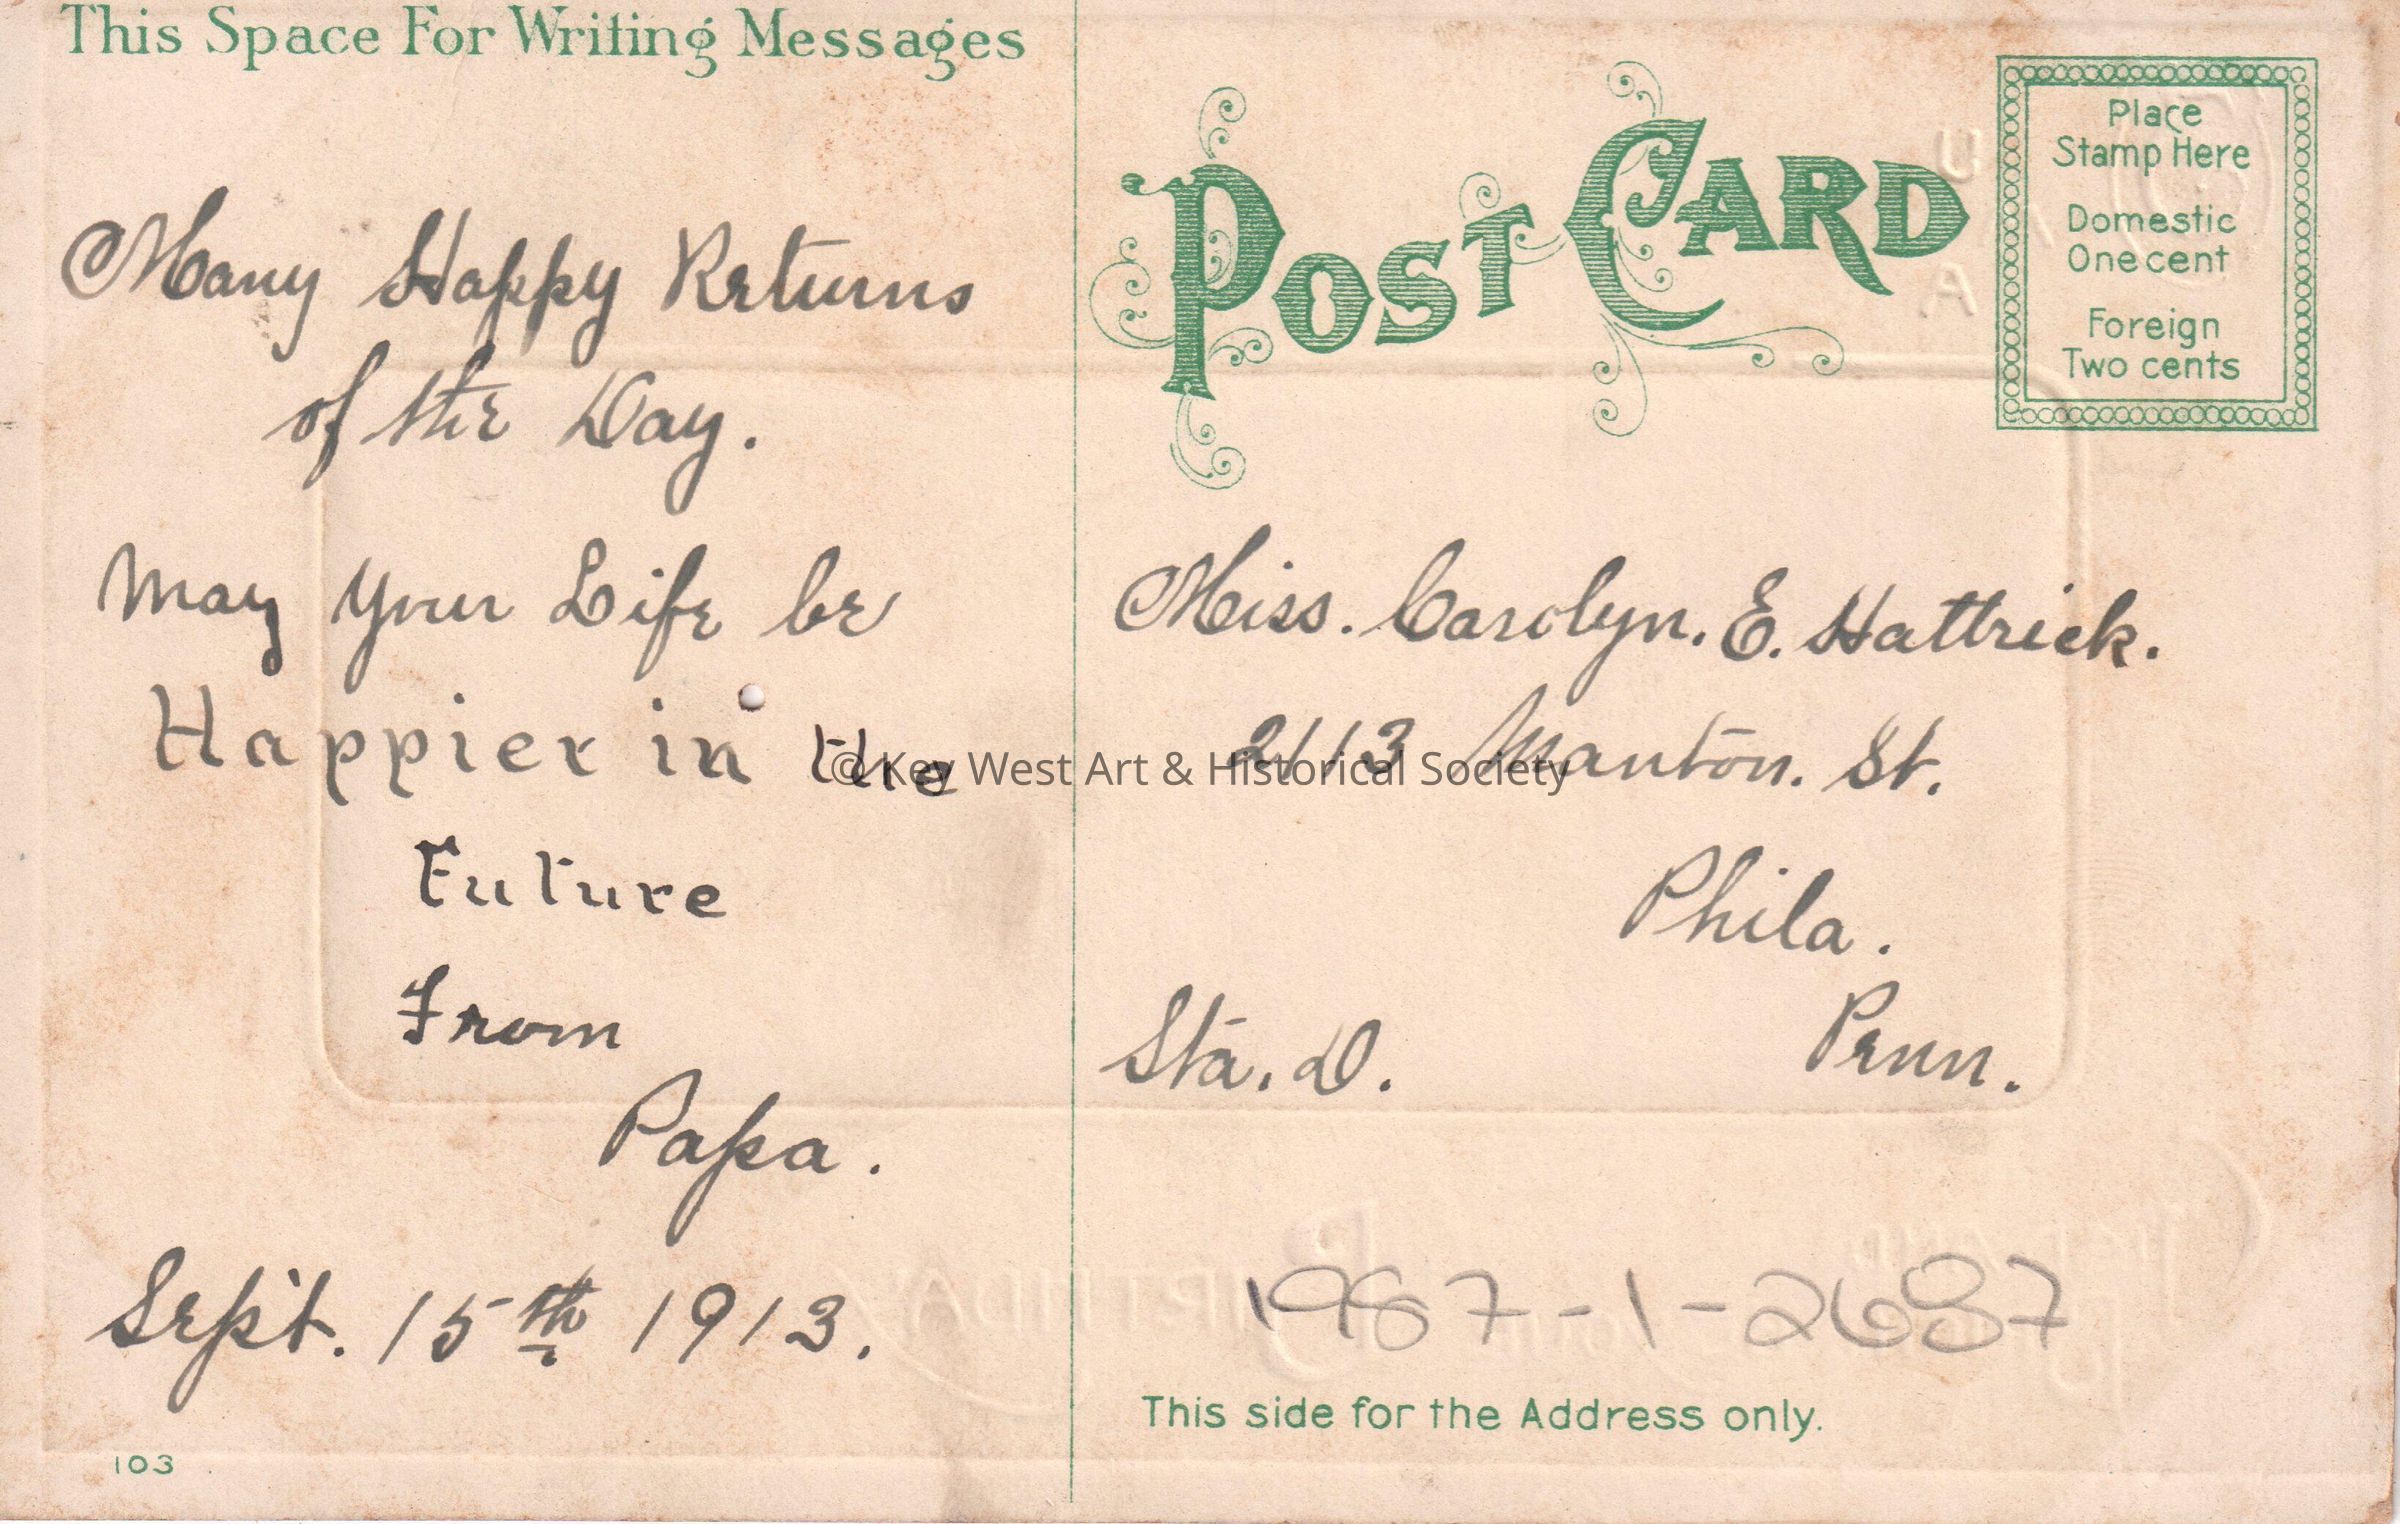 This Space For Writing Messages
Many Happy Returns
of the Day.
May your Life be
Happier in the
Future
From
Papa.
Sept. 15th 1913.
103
POST CARD
Place
Stamp Here
Domestic
One cent
Foreign
Two cents
Miss. Carolyn. E. Hattrick.
2113 Manton. St.
Phila.
Penn.
Sta. D.
1987-1-2687
This side for the Address only.
© Key West Art & Historical Society